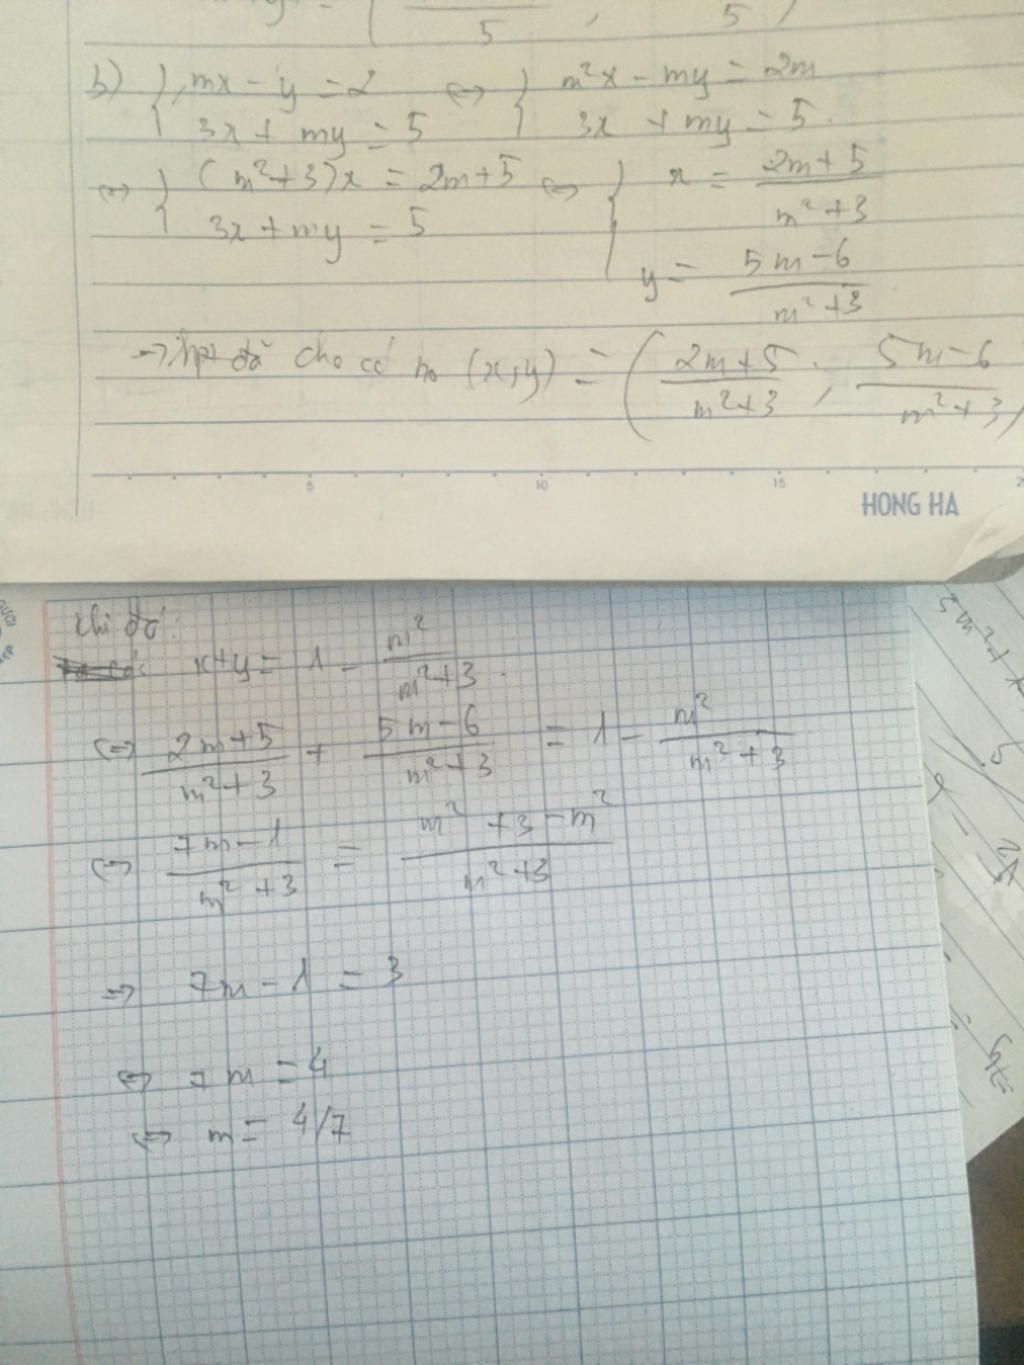 5 , 5 )
b) { mx - y = 2 ⇔ { m²x - my = 2m
3x + my = 5 3x + my = 5.
⇔ { (m²+3)x = 2m+5 ⇔ { x = (2m+5)/(m²+3)
3x + my = 5
y = (5m-6)/(m²+3)
→ hpt đã cho có no (x,y) = ( (2m+5)/(m²+3) ; (5m-6)/(m²+3)
5 10 15
HONG HA
Khi đó:
x+y = 1 - m²/(m²+3).
⇔ (2m+5)/(m²+3) + (5m-6)/(m²+3) = 1 - m²/(m²+3)
⇔ (7m-1)/(m²+3) = (m²+3-m²)/(m²+3)
⇒ 7m - 1 = 3
⇔ 7m = 4
⇔ m = 4/7